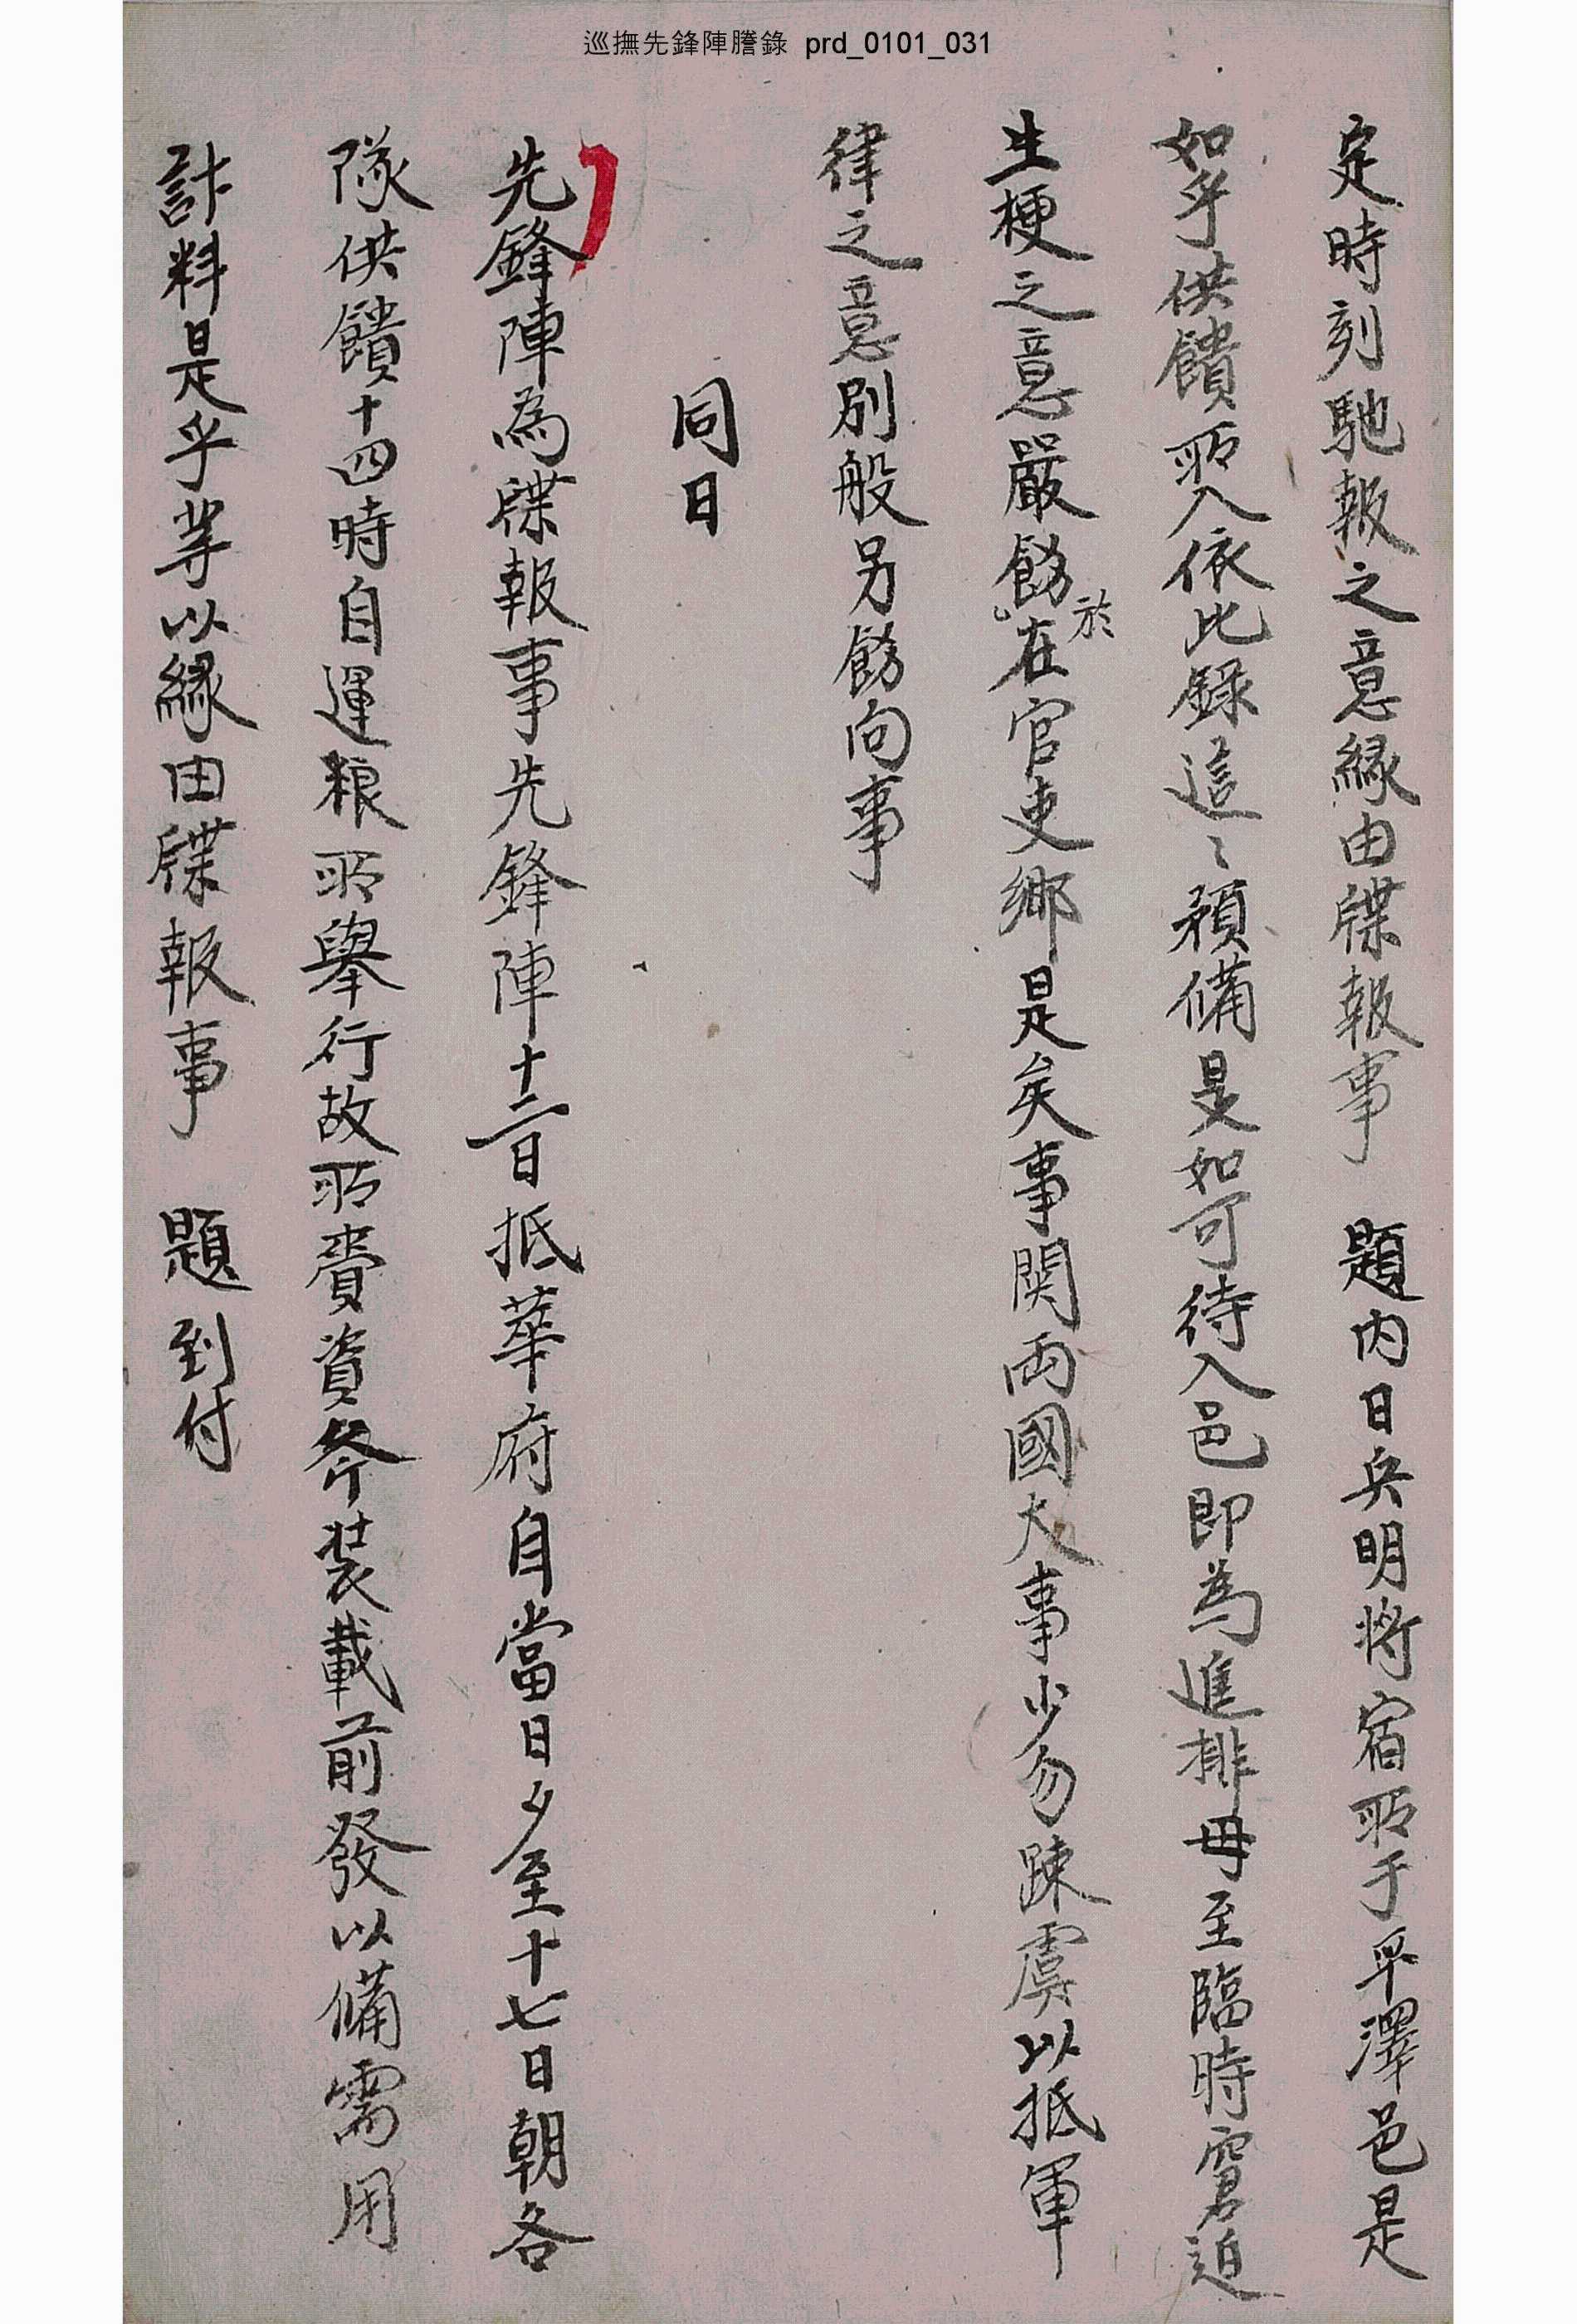 巡撫先鋒陣謄錄 prd_0101_031
定時刻馳報之意緣由牒報事 題內日兵明將宿所于平澤邑是
如乎供饋所入依此錄這〻預備是如可待入邑卽為進排毋至臨時窘迫
生梗之意嚴飭於在官吏鄉是矣事関兩國大事少勿踈虞以抵軍
律之意別般另飭向事
同日
先鋒陣為牒報事先鋒陣十二日抵華府自當日夕至十七日朝各
隊供饋十四時自運粮所舉行故所賫資斧装載前發以備需用
計料是乎等以緣由牒報事 題到付